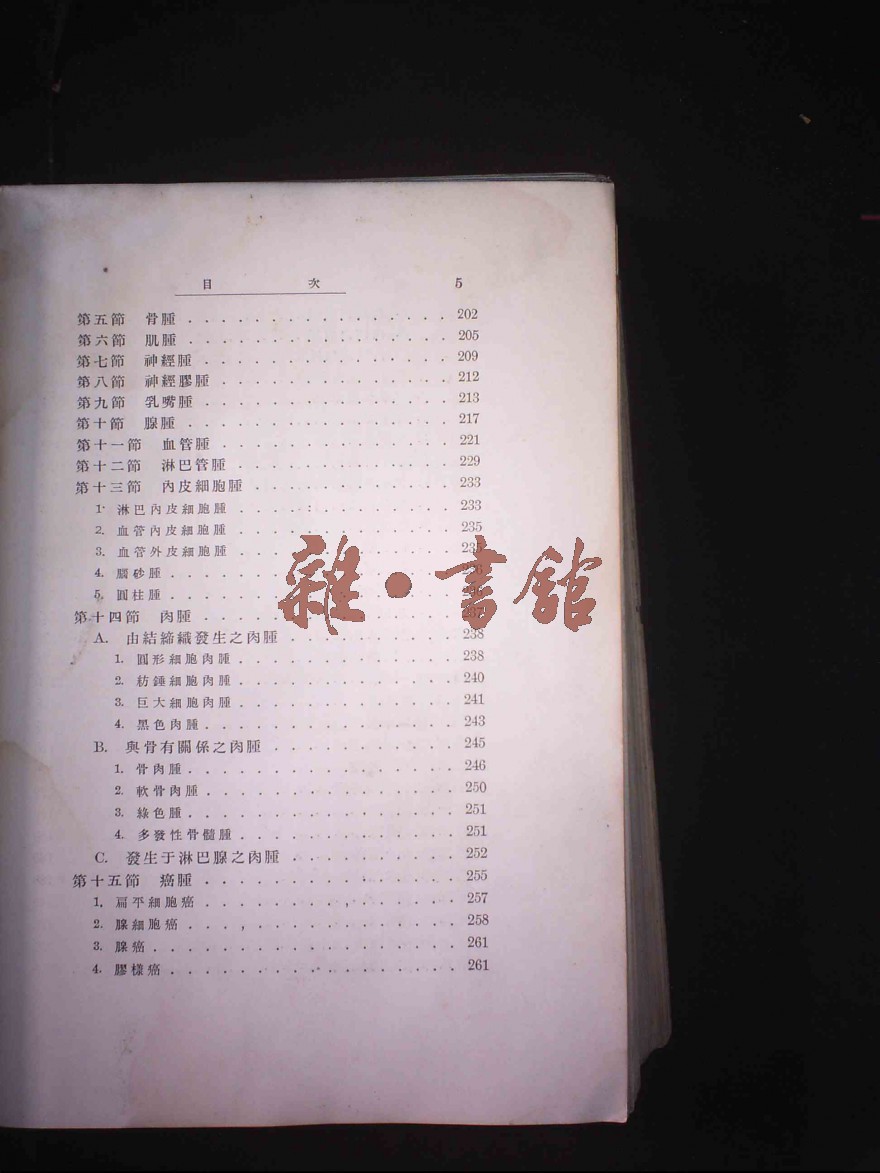 目次 5
第五節 骨腫 . . . . . . . . . . . . . . . . 202
第六節 肌腫 . . . . . . . . . . . . . . . . 205
第七節 神經腫 . . . . . . . . . . . . . . . 209
第八節 神經膠腫 . . . . . . . . . . . . . . 212
第九節 乳嘴腫 . . . . . . . . . . . . . . . 213
第十節 腺腫 . . . . . . . . . . . . . . . . 217
第十一節 血管腫 . . . . . . . . . . . . . . 221
第十二節 淋巴管腫 . . . . . . . . . . . . . 229
第十三節 內皮細胞腫 . . . . . . . . . . . . 233
1. 淋巴內皮細胞腫 . . . . . . . . . . . . . 233
2. 血管內皮細胞腫 . . . . . . . . . . . . . 235
3. 血管外皮細胞腫 . . . . . . . . . . . . .
4. 腦砂腫 . . . . . . . . . . . . . . . . .
5. 圓柱腫 . . . . . . . . . . . . . . . . .
第十四節 肉腫 . . . . . . . . . . . . . . .
A. 由結締織發生之肉腫 . . . . . . . . . . . 238
1. 圓形細胞肉腫 . . . . . . . . . . . . . . 238
2. 紡錘細胞肉腫 . . . . . . . . . . . . . . 240
3. 巨大細胞肉腫 . . . . . . . . . . . . . . 241
4. 黑色肉腫 . . . . . . . . . . . . . . . . 243
B. 與骨有關係之肉腫 . . . . . . . . . . . . 245
1. 骨肉腫 . . . . . . . . . . . . . . . . . 246
2. 軟骨肉腫 . . . . . . . . . . . . . . . . 250
3. 綠色腫 . . . . . . . . . . . . . . . . . 251
4. 多發性骨髓腫 . . . . . . . . . . . . . . 251
C. 發生于淋巴腺之肉腫 . . . . . . . . . . . 252
第十五節 癌腫 . . . . . . . . . . . . . . . 255
1. 扁平細胞癌 . . . . . . . . . . . . . . . 257
2. 腺細胞癌 . . . . . . . . . . . . . . . . 258
3. 腺癌 . . . . . . . . . . . . . . . . . . 261
4. 膠樣癌 . . . . . . . . . . . . . . . . . 261
雜·書館